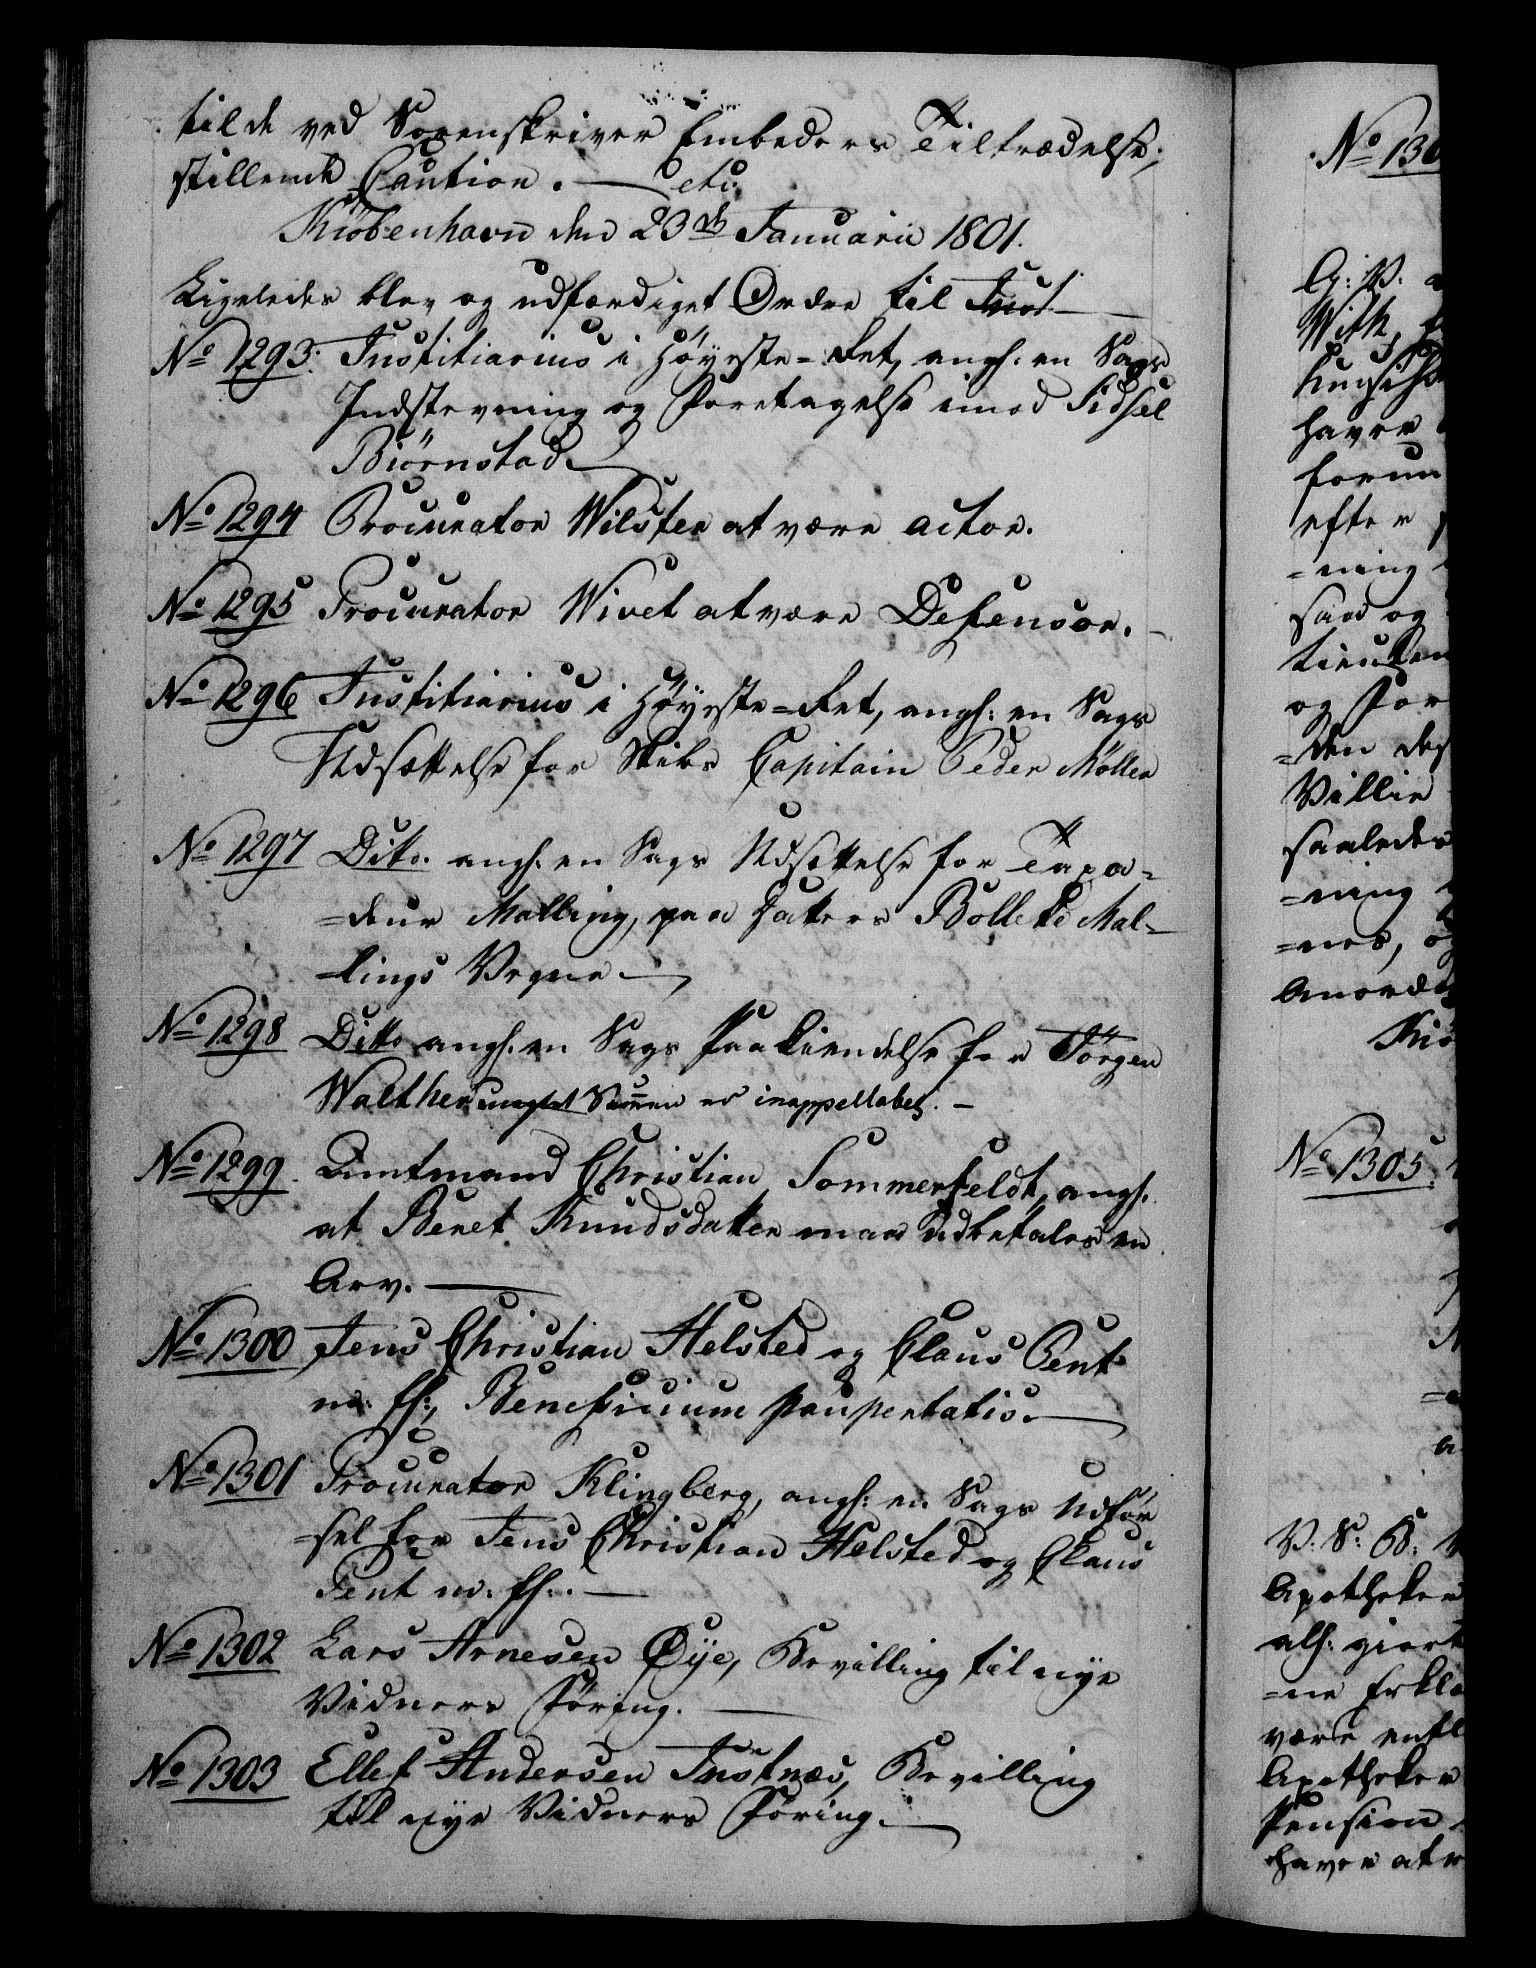 til de ved Sorenskriver Embeders Tiltrædelse,
stillende Caution. — etc.
Kiöbenhavn den 23de Januarii 1801.
Ligeledes blev og udfærdiget Ordre til Just. —
No 1293. Justitiarius i Höyeste=Ret, angl: en Sags
Indstevning og Foretagelse imod Sidsel
Biörnstad.
No 1294 Procurator Wilster at være actor.
No 1295 Procurator Wivet at være Defensor.
No 1296 Justitiarius i Höyeste=Ret, angl: en Sags
Udsættelse for Skibs Capitain Peder Möller
No 1297 Dito. angl: en Sags Udsættelse for Taxa=
=deur Malling, paa Datters Bollette Mal=
lings Vegne —
No 1298 Ditto angl: en Sags Paakiendelse for Jörgen
Walther uagtet Summen er inappellabel. —
No 1299. Amtmand Christian Sommerfeldt, angl.
at Beret Knudsdatter maa udbetales en
Arv. —
No 1300 Jens Christian Helsted og Claus Pent
m: fl:, Beneficium paupertatis. —
No 1301 Procurator Klingberg, angl: en Sags Udför
=sel for Jens Christian Helsted og Claus
Pent m: fl:. —
No 1302 Lars Arnesen Öye, Bevilling til nye
Vidners Föring. —
No 1303 Ellef Andersen Justnæs, Bevilling
til nye Vidners Föring. —
No 130
havere
efter
=ning
saa og
og For
Villie
saaledes
=ning
No 1305.
V. S. B.
Apotheker
være
Apotheker
Pension
haver at